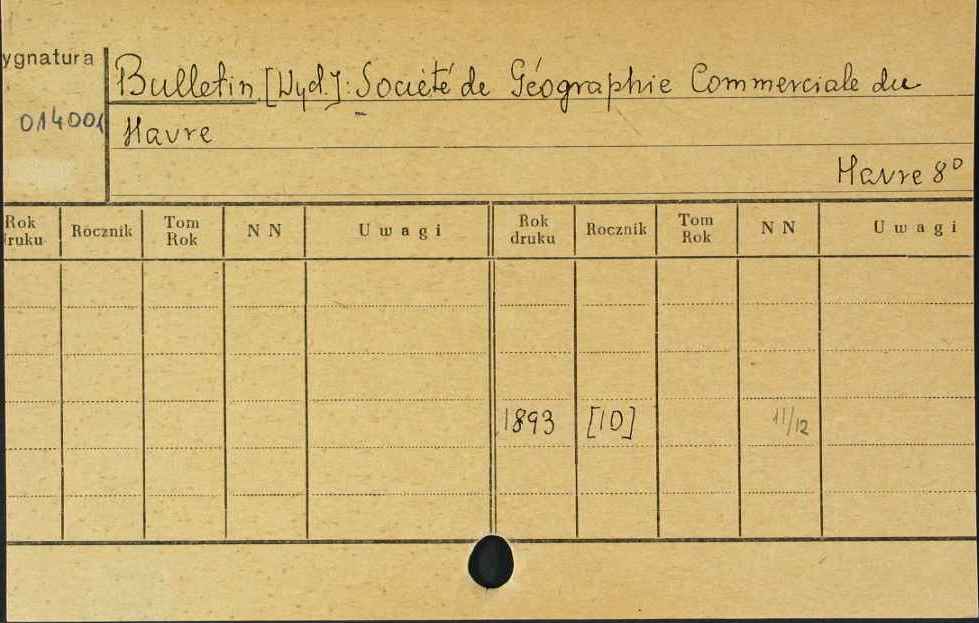 ygnatura
Bulletin [Wyd.]: Société de Géographie Commerciale du
014001
Havre
Havre 8°
Rok druku Rocznik Tom Rok NN Uwagi Rok druku Rocznik Tom Rok NN Uwagi
1893 [10] 11/12